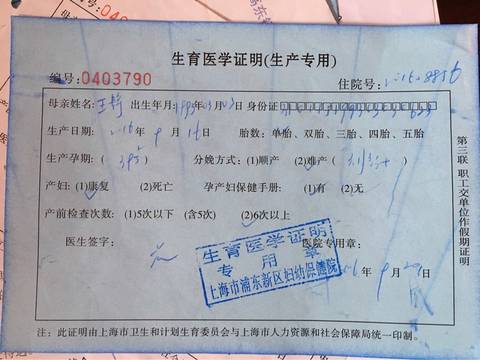 生育医学证明(生产专用)
编号:0403790 住院号:
母亲姓名 王 出生年月 身份证
生产日期: 年 9月 日 胎数:单胎、双胎、三胎、四胎、五胎
生产孕期:( ) 分娩方式:(1)顺产 (2)难产( )
产妇:(1)康复 (2)死亡 孕产妇保健手册:(1)有 (2)无
产前检查次数:(1)5次以下 (含5次) (2)6次以上
医生签字: 医院专用章:
生育医学证明
专用章
上海市浦东新区妇幼保健院
年 9月 日
注:此证明由上海市卫生和计划生育委员会与上海市人力资源和社会保障局统一印制。
第三联 职工交单位作假期证明